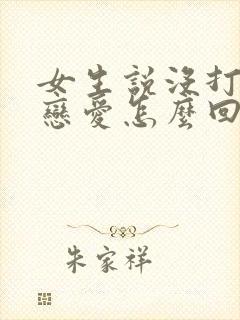 女生説沒打
戀愛怎麼回
朱家祥